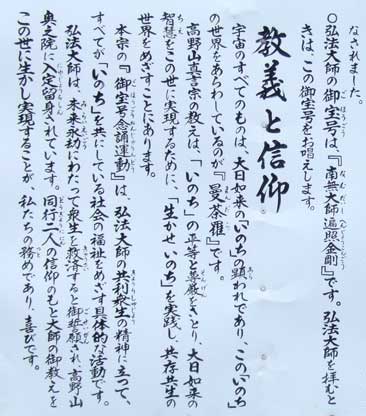 なされました。
○弘法大師の御宝号は、『南無大師遍照金剛』です。弘法大師を拝むと
きは、この御宝号をお唱えします。
教義と信仰
宇宙のすべてのものは、大日如来の「いのち」の顕われであり、この「いのち」
の世界をあらわしているのが『曼荼羅』です。
高野山真言宗の教えは、「いのち」の平等と尊厳をさとり、大日如来の
智慧をこの世に実現するために、「生かせいのち」を実践し、共存共生の
世界をめざすことにあります。
本宗の『御宝号念誦運動』は、弘法大師の共利衆生の精神に立って、
すべてが「いのち」を共にしている社会の福祉をめざす具体的な活動です。
弘法大師は、未来永劫にわたって衆生を救済すると御誓願され、高野山
奥之院に入定留身されています。同行二人の信仰のもと大師の御教えを
この世に生かし実現することが、私たちの務めであり、喜びです。